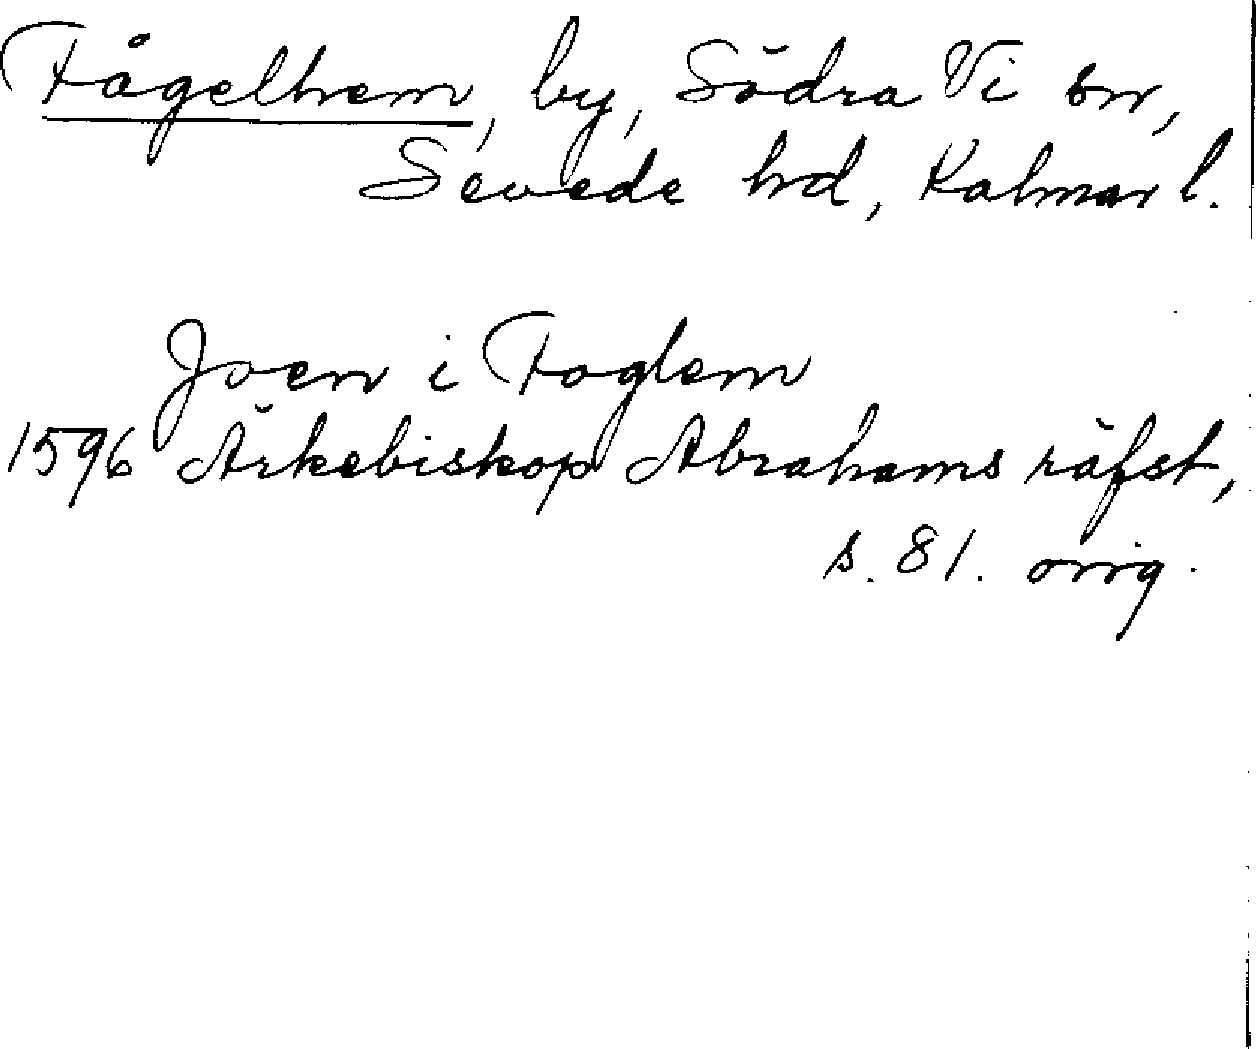 Fågelhem, by, Södra Vi sn,
Sevede hd, Kalmar l.
Joen i Foglem
1596 Ärkebiskop Abrahams räfst,
s. 81. orig.